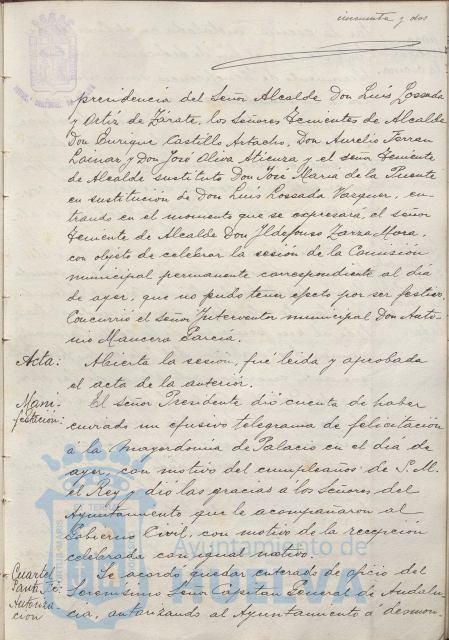 cincuenta y dos
presidencia del Señor Alcalde Don Luis Lossada
y Ortiz de Zárate, los señores Tenientes de Alcalde
Don Enrique Castillo Astacho, Don Aurelio Ferran
Lainar y Don José Oliva Atienza y el señor Teniente
de Alcalde sustituto Don José María de la Puente
en sustitución de Don Luis Lossada Vazquez, en-
trando en el momento que se expresará el señor
Teniente de Alcalde Don Ildefonso Zarza Mora,
con objeto de celebrar la sesión de la Comisión
municipal permanente correspondiente al dia
de ayer, que no pudo tener efecto por ser festivo.
Concurrió el señor Interventor municipal Don Anto-
nio Mancera García.
Acta: Abierta la sesión, fué leida y aprobada
el acta de la anterior.
Mani-
festación: El señor Presidente dió cuenta de haber
cursado un efusivo telegrama de felicitación
á la Mayordomía de Palacio en el día de
ayer, con motivo del cumpleaños de S. M.
el Rey y dió las gracias á los Señores del
Ayuntamiento que le acompañaron al
Gobierno Civil, con motivo de la recepción
celebrada con igual motivo.
Cuartel
Autoriza-
ción Se acordó quedar enterado de oficio del
Serenísimo Señor Capitan General de Andalu-
cia, autorizando al Ayuntamiento á desmon-
Ayuntamiento de